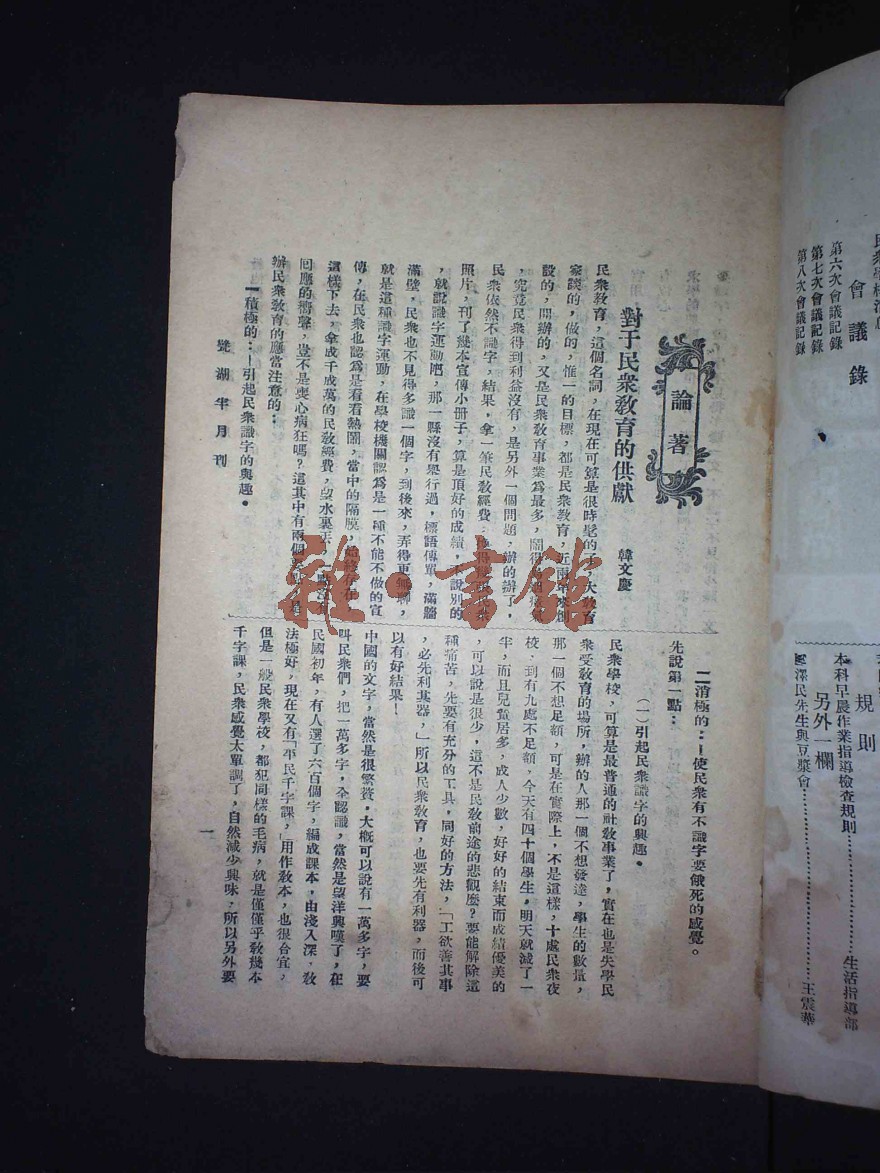 論著
對于民衆敎育的供獻
韓文慶
民衆敎育，這個名詞，在現在可算是很時髦的了，大敎育
家談的，做的，惟一的目標，都是民衆敎育，近兩年來創
設的，開辦的，又是民衆敎育事業爲最多，鬧得
，究竟民衆得到利益沒有，是另外一個問題，辦的辦了，
民衆依然不識字，結果，拿一筆民敎經費，
照片，刋了幾本宣傳小册子，算是頂好的成績，不說別的
，就說識字運動吧，那一縣沒有舉行過，標語傳單，滿牆
滿壁，民衆也不見得多識一個字，到後來，弄得更無聊，
就是這種識字運動，在學校機關認爲是一種不能不做的宣
傳，在民衆也認爲是看看熱鬧，當中的隔膜，始終存在
這樣下去，拿成千成萬的民敎經費，望水裏丟，一點沒
回應的響聲，豈不是喪心病狂嗎？這其中有兩個要點，是
辦民衆敎育的應當注意的：
一積極的：—引起民衆識字的興趣。
二消極的：—使民衆有不識字要餓死的感覺。
先說第一點：
（一）引起民衆識字的興趣。
民衆學校，可算是最普通的社敎事業了，實在也是失學民
衆受敎育的場所，辦的人那一個不想發達，學生的數量，
那一個不想足額，可是在實際上，不是這樣，十處民衆夜
校，到有九處不足額，今天有四十個學生，明天就減了一
半，而且兒童居多，成人少數，好好的結束而成績優美的
，可以說是很少，這不是民敎前途的悲觀麼？要能解除這
種痛苦，先要有充分的工具，同好的方法，「工欲善其事
，必先利其器，」所以民衆敎育，也要先有利器，而後可
以有好結果！
中國的文字，當然是很繁賾，大槪可以說有一萬多字，要
叫民衆們，把一萬多字，全認識，當然是望洋興嘆了，在
民國初年，有人選了六百個字，編成課本，由淺入深，敎
法極好，現在又有「平民千字課，」用作敎本，也很合宜，
但是一般民衆學校，都犯同樣的毛病，就是僅僅乎敎幾本
千字課，民衆感覺太單調了，自然減少興味，所以另外要
湖半月刊
一
會議錄
第六次會議記錄
第七次會議記錄
第八次會議記錄
規則
本科早晨作業指導檢查規則……生活指導部
另外一欄
澤民先生與豆漿會……王震華
雜·書館